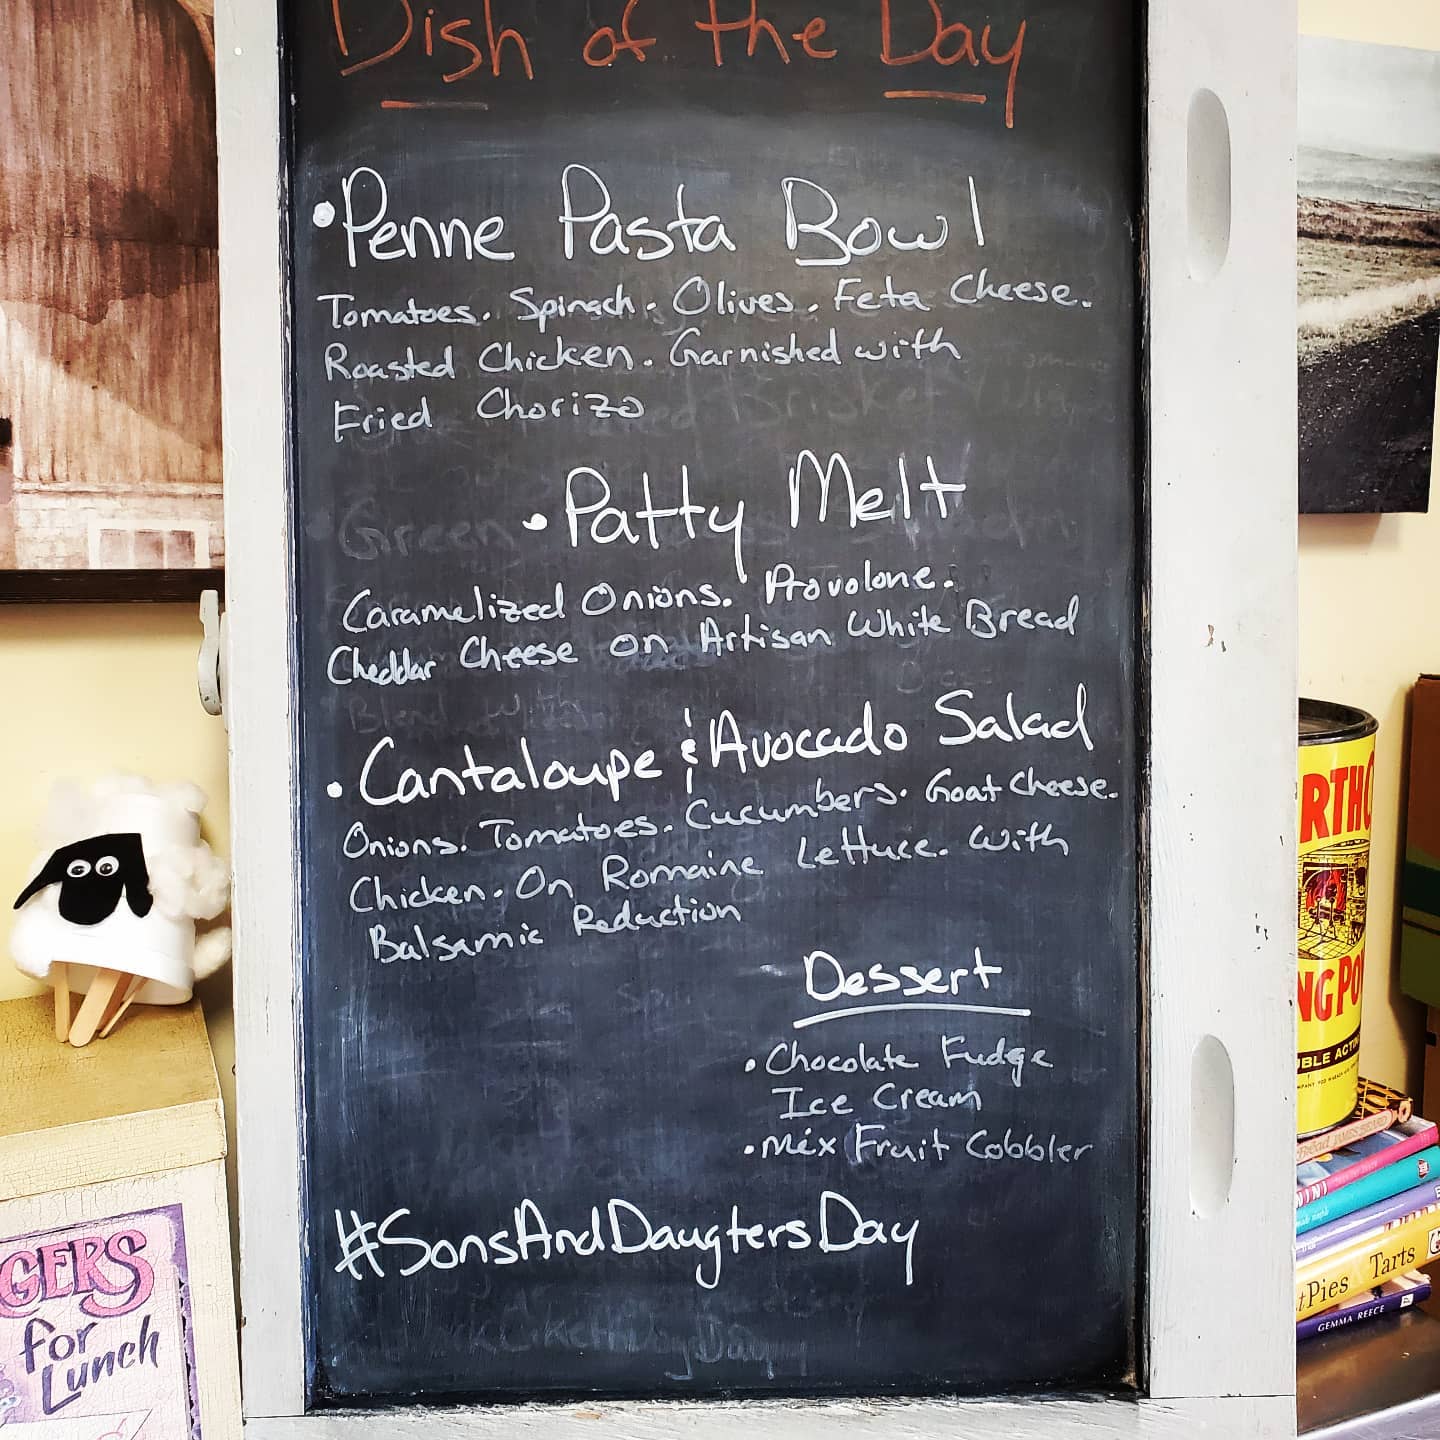 Dish of the Day
•Penne Pasta Bowl
Tomatoes. Spinach. Olives. Feta Cheese.
Roasted Chicken. Garnished with
Fried Chorizo
•Patty Melt
Caramelized Onions. Provolone.
Cheddar Cheese on Artisan White Bread
•Cantaloupe & Avocado Salad
Onions. Tomatoes. Cucumbers. Goat Cheese.
Chicken. On Romaine Lettuce. With
Balsamic Reduction
Dessert
•Chocolate Fudge
Ice Cream
•Mix Fruit Cobbler
#SonsAndDaugtersDay
GERS
for
Lunch
RTHO
NG PO
BLE ACTI
Tarts
Pies
GEMMA REECE